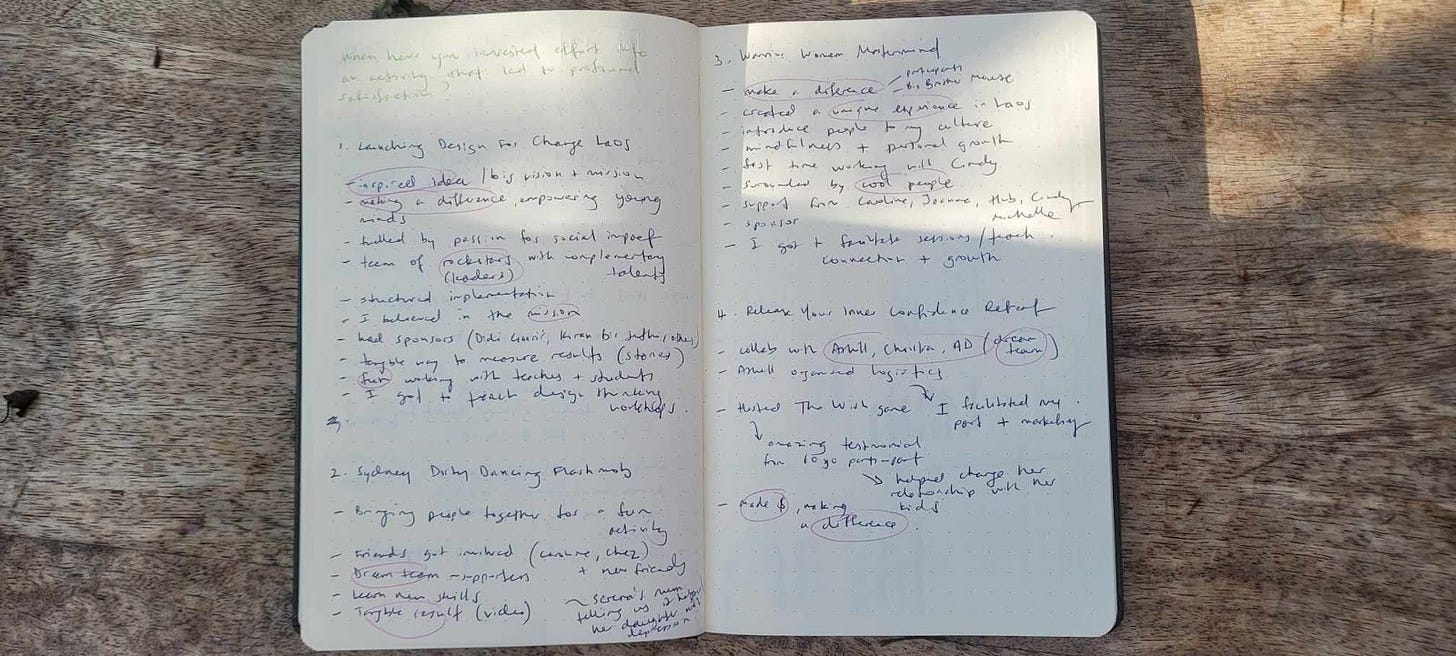 when have you invested effort into
an activity that led to profound
satisfaction?
1. Launching Design For Change Laos
- inspired idea / big vision + mission
- making a difference, empowering young
minds
- fuelled by passion for social impact
- team of rockstars with complementary
(leaders) talents
- structured implementation
- I believed in the mission
- had sponsors (Didi
- tangible way to measure results (stories)
- fun working with teachers + students
- I got to teach design thinking
workshops.
2. Sydney Dirty Dancing Flashmob
- Bringing people together for a fun
activity
- Friends got involved (Caroline, Chez)
+ new friends
- Dream team - supporters
- Learn new skills
- Tangible result (video)
~ Serena's mum
telling us it helped
her daughter
depression
3. Warrior Women Mastermind
- make a difference
participants
Big Brother Mouse
- created a unique experience in Laos
- introduce people to my culture
- mindfulness + personal growth
- first time working with Cindy
- surrounded by cool people
- support from Caroline, Joanne, Hub, Cindy
michelle
- sponsor
- I got to facilitate sessions / teach.
connection + growth
4. Release Your Inner Confidence Retreat
- collab with Christin, AD (dream
team)
- organised logistics
I facilitated my
part + marketing
- Hosted The Wish game
amazing testimonial
from 60 yo participant
helped change her
relationship with her
kids
- made $, making
a difference.